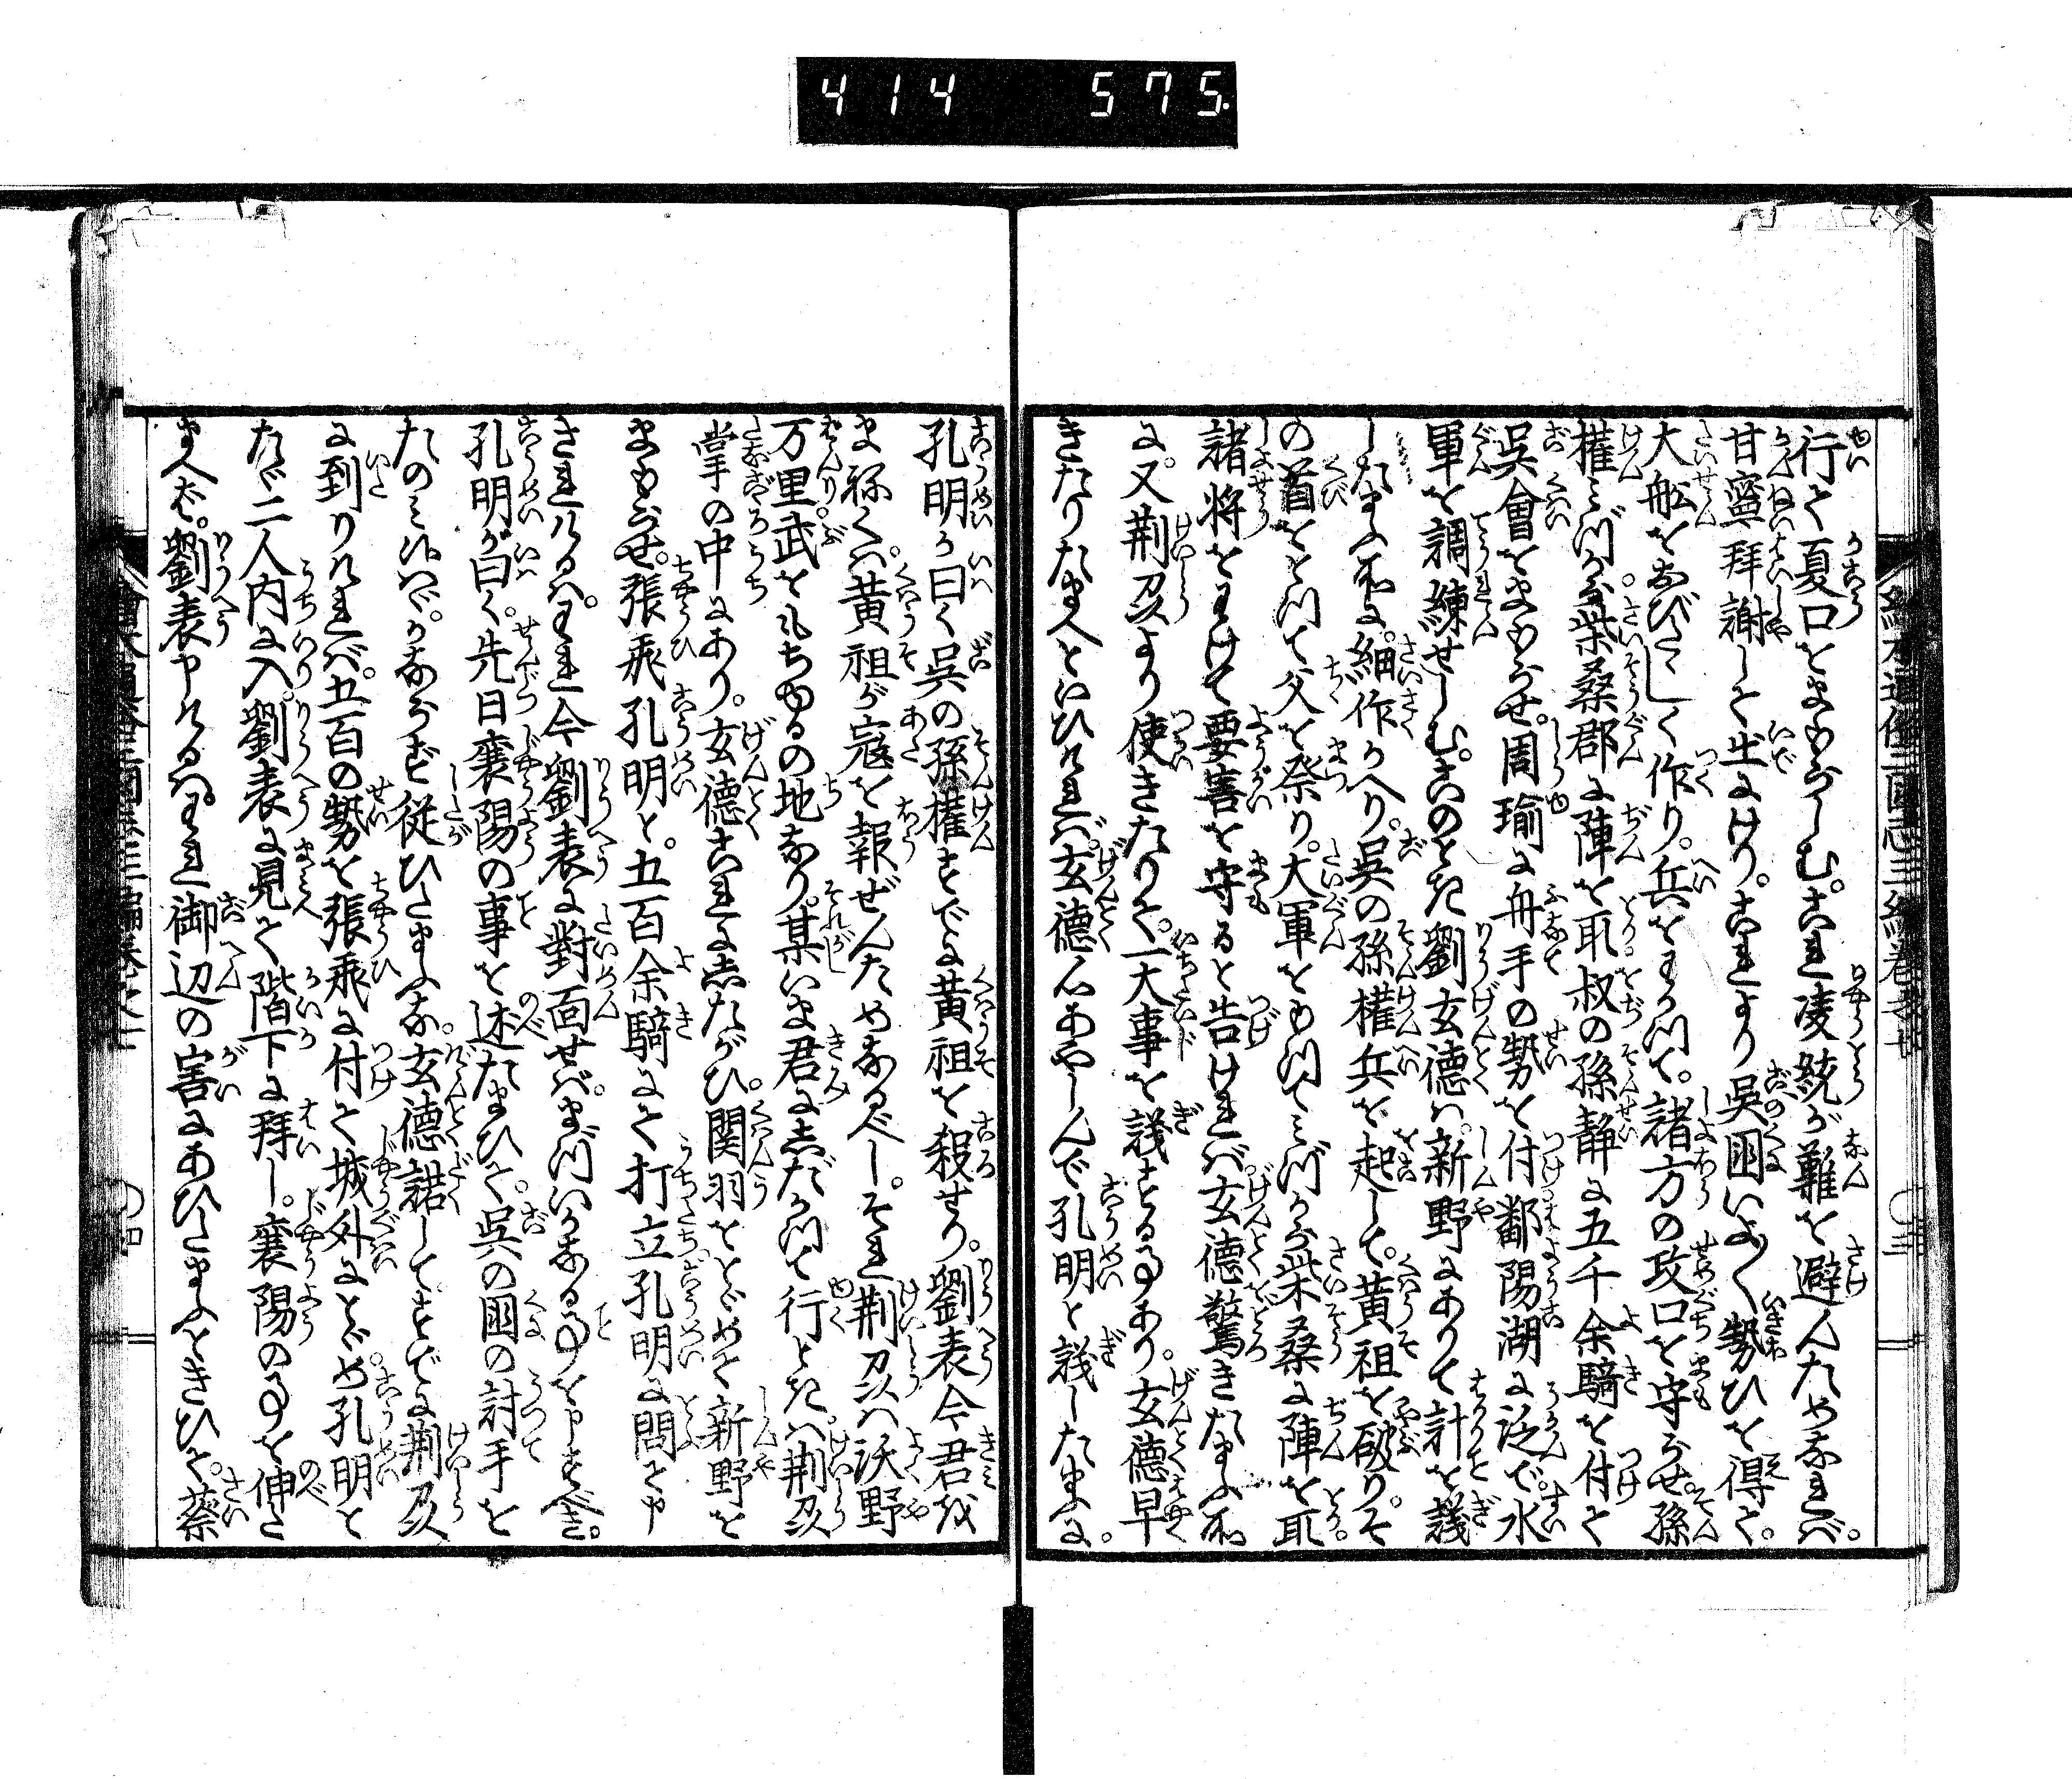 414 575
繪本通俗三國志三編卷之七
行て夏口をまもらしむ。これ凌統が難を避んためなれバ。
甘寧拜謝して出にけり。これより吳国いよ〱勢ひを得て。
大舩をおびたゝしく作り。兵をわかつて。諸方の攻口を守らせ。孫
權ミづから柴桑郡に陣を取叔の孫静に五千余騎を付て
吳會をまもらせ。周瑜に舟手の勢を付鄱陽湖に泛で水
軍を調練せしむ。このとき劉玄德ハ。新野にありて計を議
したまふ所に。細作かへり。吳の孫權兵を起して。黄祖を破り。そ
の首をとつて父を祭り。大軍をもつてミづから柴桑に陣を取。
諸将をわけて要害を守ると告けれバ。玄德驚きたまふ所
に。又荆州より使きたりて。一大事を議する事あり。玄德早
きたりたまへといひけれバ。玄德心あやしんで孔明と議したまふに。
孔明が曰く吳の孫權すでに黄祖を殺せり。劉表今君を
まねくハ。黄祖が寇を報ぜんためなるべし。それ荆州ハ沃野
万里。武をもちゆるの地なり。某いま君にしたがつて行ときハ。荆州
掌の中にあり。玄德これにしたがひ。関羽をとゞめて新野を
まもらせ。張飛孔明と。五百余騎にて打立孔明に問て申
されけるハ。われ今劉表に對面せバ。まづいかなる事を申すべき。
孔明が曰く。先日襄陽の事を述たまひて。吳の国の討手を
たのミ候ハヾ。かならず従ひたまふな。玄德諾してすでに荆州
に到りけれバ。五百の勢を張飛に付て城外にとゞめ。孔明と
たゞ二人内に入。劉表に見て階下に拜し。襄陽の事を伸た
まへば。劉表申けるハ。われ御辺の害にあひたまふときひて。蔡